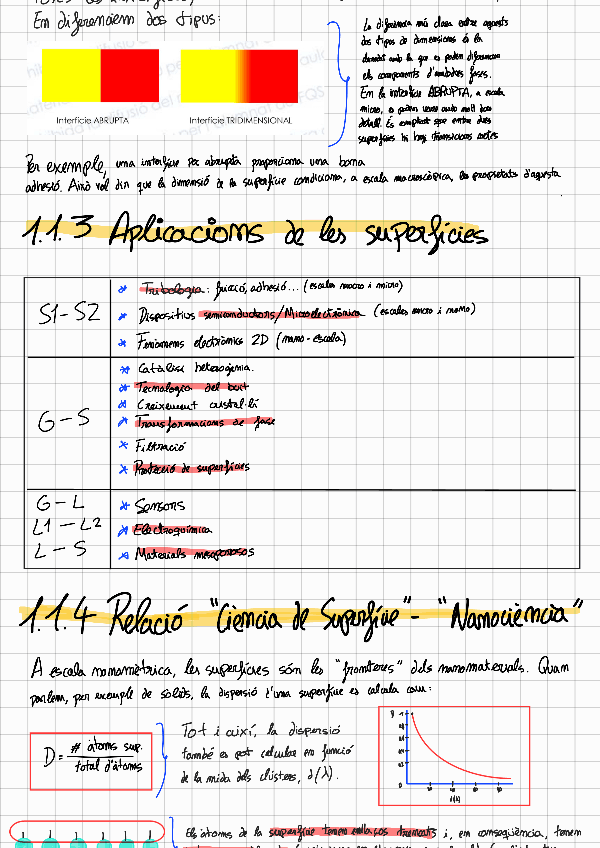 En diferenciem dos tipus:
La diferència més clara entre aquests
dos tipus de dimensions és la
claredat amb la que es poden diferenciar
els components d'ambdues fases.
En la interfície ABRUPTA, a escala
micro, es poden veure amb molt bon
detall. És complicat que entre dues
superfícies hi hagi transicions netes
Interfície ABRUPTA
Interfície TRIDIMENSIONAL
Per exemple, una interfície poc abrupta proporciona una bona
adhesió. Això vol dir que la dimensió de la superfície condiciona, a escala macroscòpica, les propietats d'aquesta
1.1.3 Aplicacions de les superfícies
S1-S2
Tribologia: fricció, adhesió... (escales macro i micro)
Dispositius semiconductors/Microelectrònica (escales micro i nano)
Fenòmens electrònics 2D (nano-escala)
G-S
Catàlisi heterogènia.
Tecnologia del buit
Creixement cristal·lí
Transformacions de fase
Filtració
Protecció de superfícies
G-L
L1-L2
L-S
Sensors
Electroquímica
Materials mesoporosos
1.1.4 Relació "Ciència de Superfície"- "Nanociència"
A escala nanomètrica, les superfícies són les "fronteres" dels nanomaterials. Quan
parlem, per exemple de sòlids, la dispersió d'una superfície es calcula com:
D = # àtoms sup. / total d'àtoms
Tot i així, la dispersió
també es pot calcular en funció
de la mida dels clústers, d(Å).
D
d(Å)
Els àtoms de la superfície tenen enllaços truncats i, en conseqüència, tenen